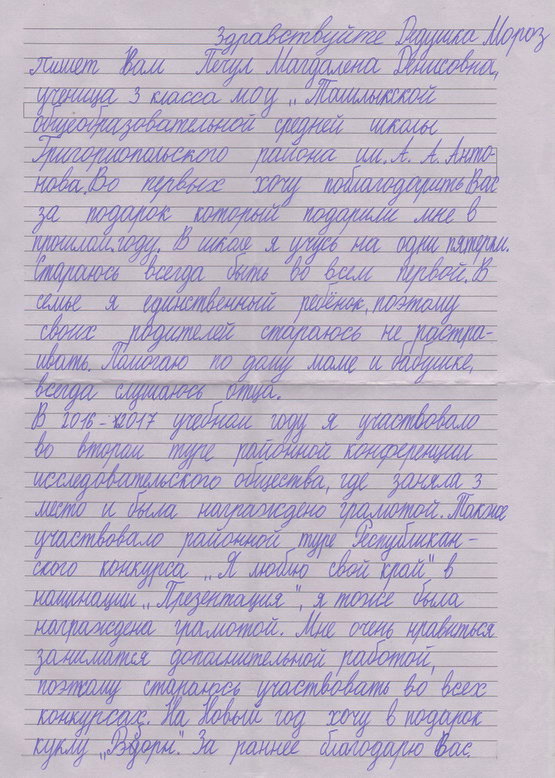 Здравствуйте Дедушка Мороз
Пишет Вам Печул Магдалена Денисовна,
ученица 3 класса МОУ „Ташлыкской
общеобразовательной средней школы
Григориопольского района им. А. А. Анто-
нова. Во первых хочу поблагодарить Вас
за подарок который подарили мне в
прошлом году. В школе я учусь на одни пятерки.
Стараюсь всегда быть во всем первой. В
семье я единственный ребёнок, поэтому
своих родителей стараюсь не растра-
ивать. Помогаю по дому маме и бабушке,
всегда слушаюсь отца.
В 2016-2017 учебном году я участвовало
во втором туре районной конференции
исследовательского общества, где заняла 3
место и была награждено грамотой. Также
участвовало районной туре Республикан-
ского конкурса „Я люблю свой край" в
наминации „Презентация", я тоже была
награждена грамотой. Мне очень нравиться
заниматся дополнительной работой,
поэтому стараюсь участвовать во всех
конкурсах. На Новый год хочу в подарок
куклу За раннее благодарю Вас.